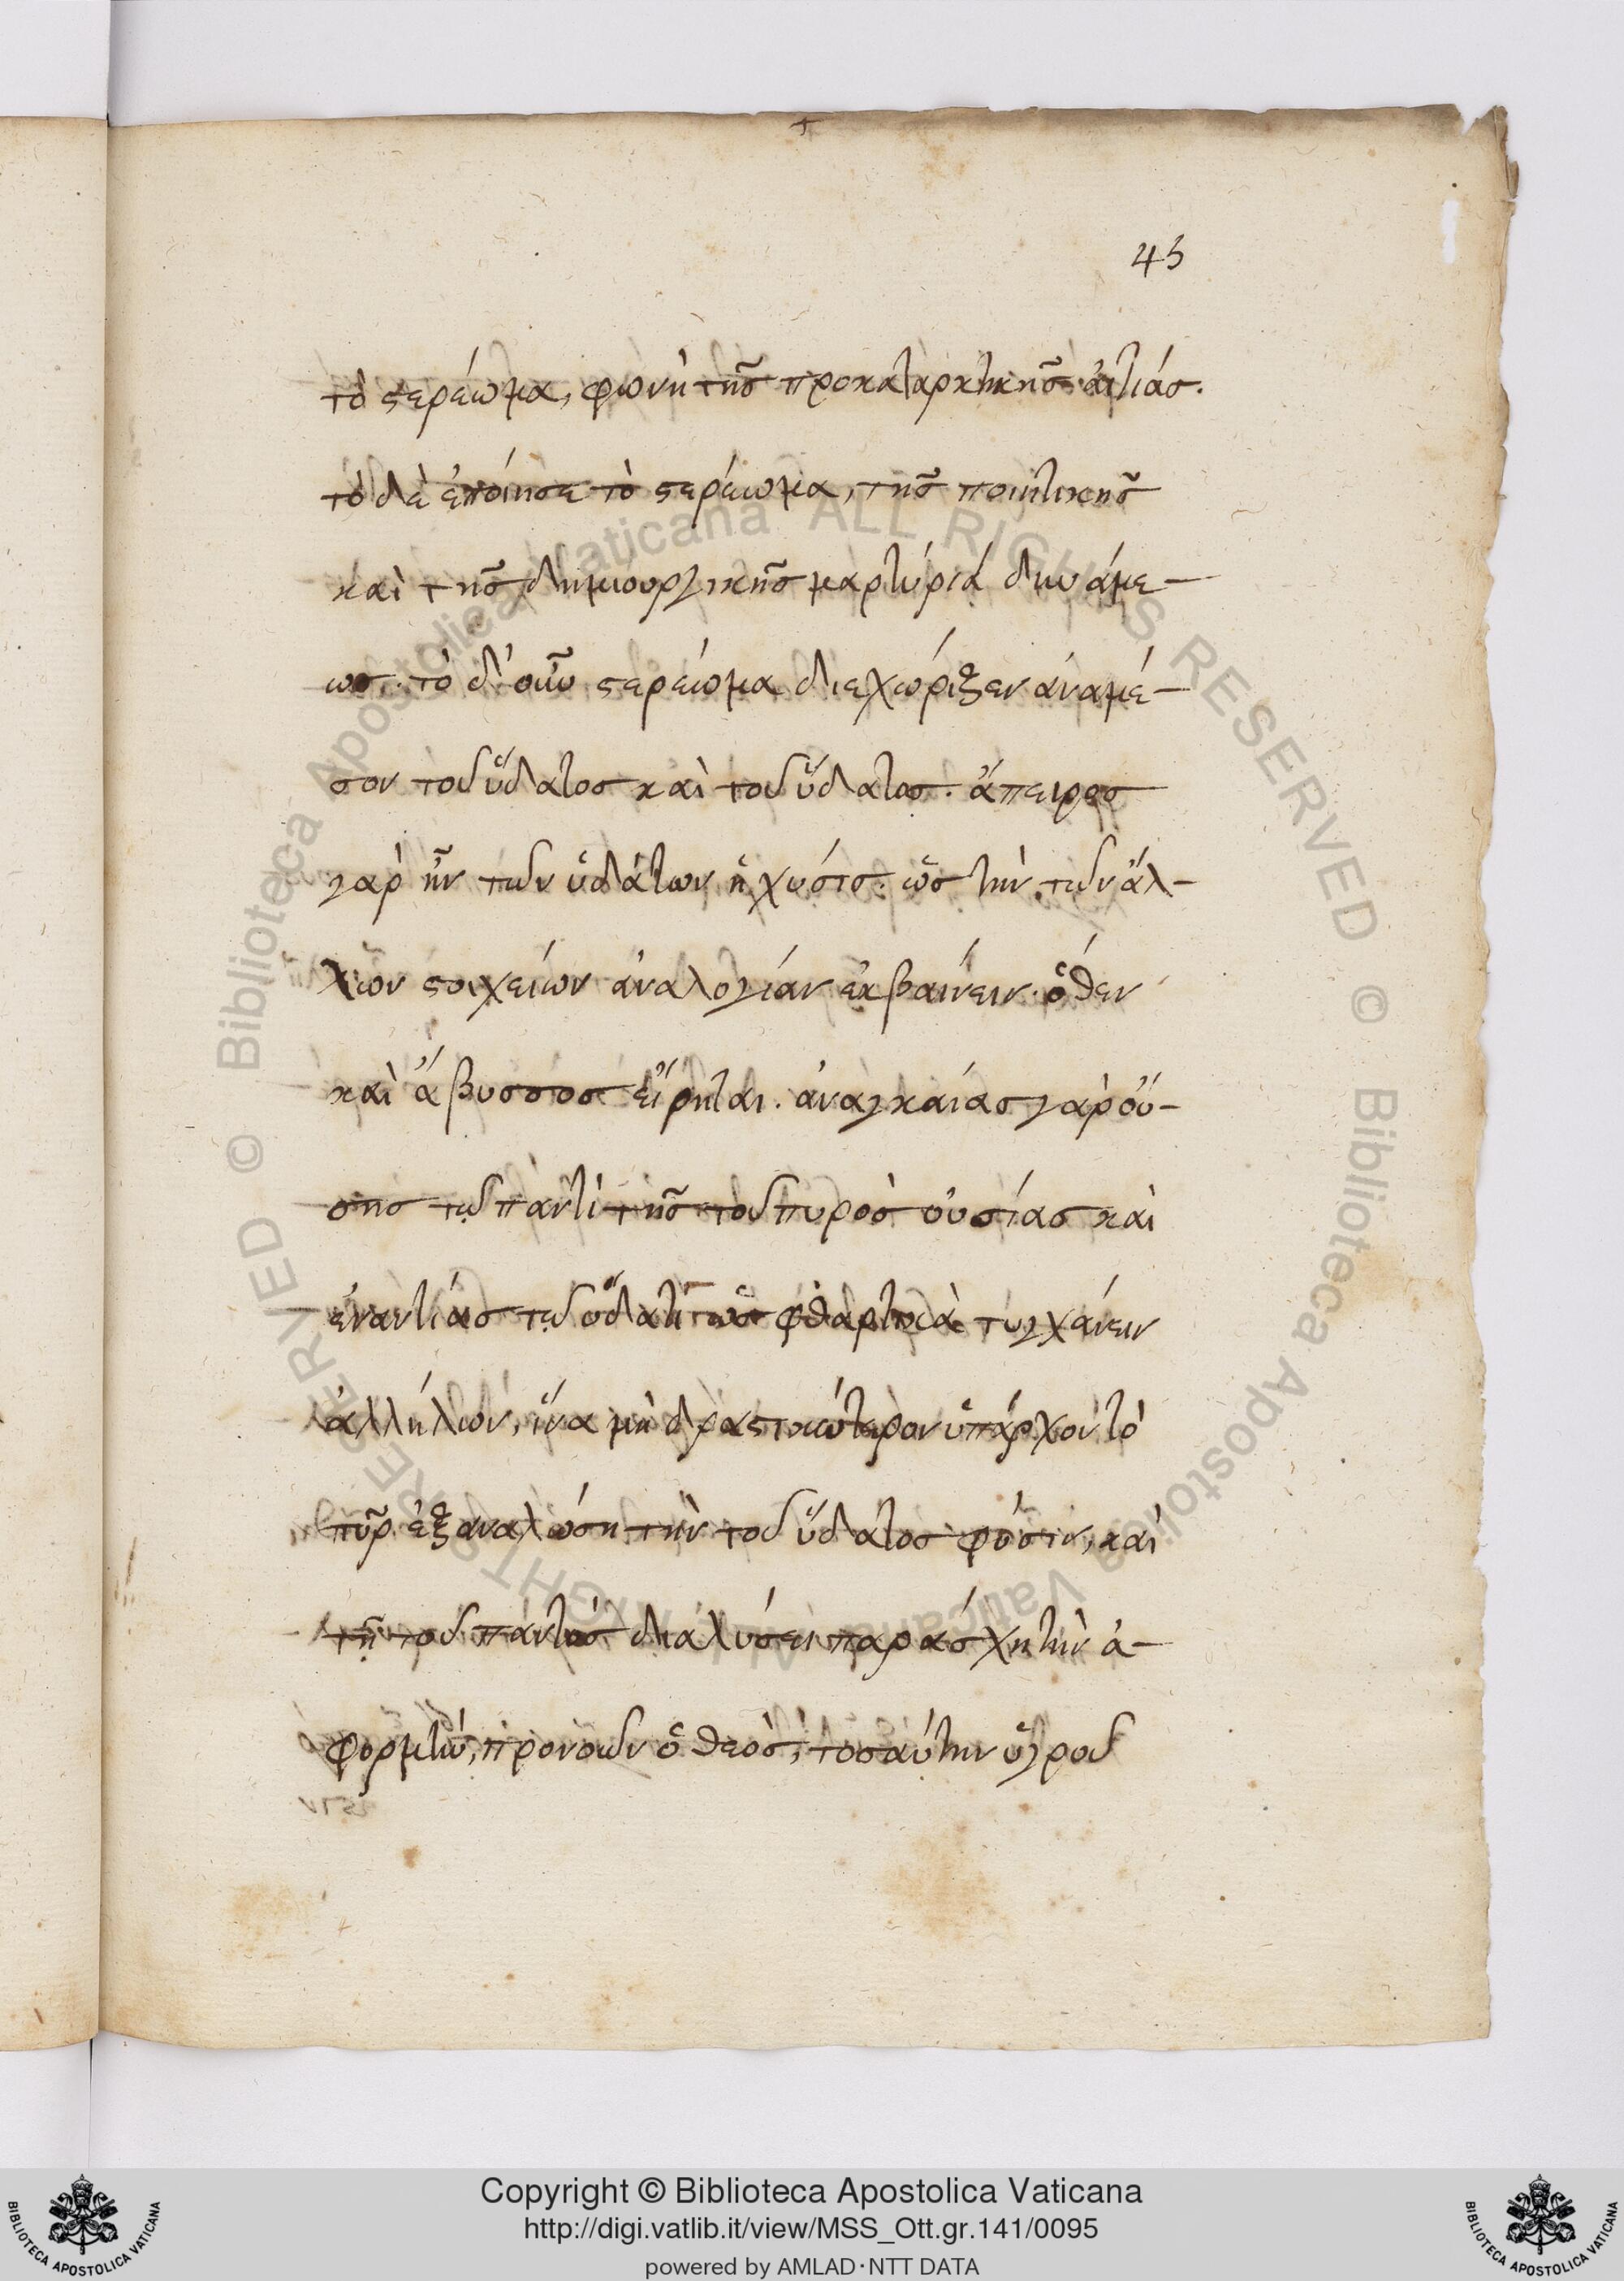 45
τὸ ϛερέωμα, φωνὴ τῆς προκαταρκτικῆς αἰτίας.
τὸ δὲ ἐποίησε τὸ ϛερέωμα, τῆς ποιητικῆς
καὶ τῆς δημιουργικῆς μαρτύρια δυνάμε-
ως. τὸ δ' οὖν ϛερέωμα διεχώριζεν ἀναμέ-
σον τοῦ ὕδατος καὶ τοῦ ὕδατος. ἄπειρος
γὰρ ἦν τῶν ὑδάτων ἡ χύσις. ὡς τὴν τῶν ἄλ-
λων ϛοιχείων ἀναλογίαν ἐκβαίνειν. ὅθεν
καὶ ἄβυσσος εἴρηται. ἀναγκαίας γὰρ οὔ-
σης τῷ παντὶ τῆς τοῦ πυρὸς οὐσίας καὶ
ἐναντίας τῷ ὕδατι ὡς φθαρτικὰ τυγχάνειν
ἀλλήλων, ἵνα μὴ δραϛικώτερον ὑπάρχον τὸ
πῦρ ἐξαναλώση τὴν τοῦ ὕδατος φύσιν, καὶ
τῇ τοῦ παντὸς διαλύσει παράσχη τὴν ἀ-
φορμὴν, προνοῶν ὁ θεὸς, τοσαύτην ὑγροῦ
Copyright © Biblioteca Apostolica Vaticana
http://digi.vatlib.it/view/MSS_Ott.gr.141/0095
powered by AMLAD·NTT DATA
BIBLIOTECA APOSTOLICA VATICANA
BIBLIOTECA APOSTOLICA VATICANA
© Biblioteca Apostolica Vaticana ALL RIGHTS RESERVED
© Biblioteca Apostolica Vaticana ALL RIGHTS RESERVED